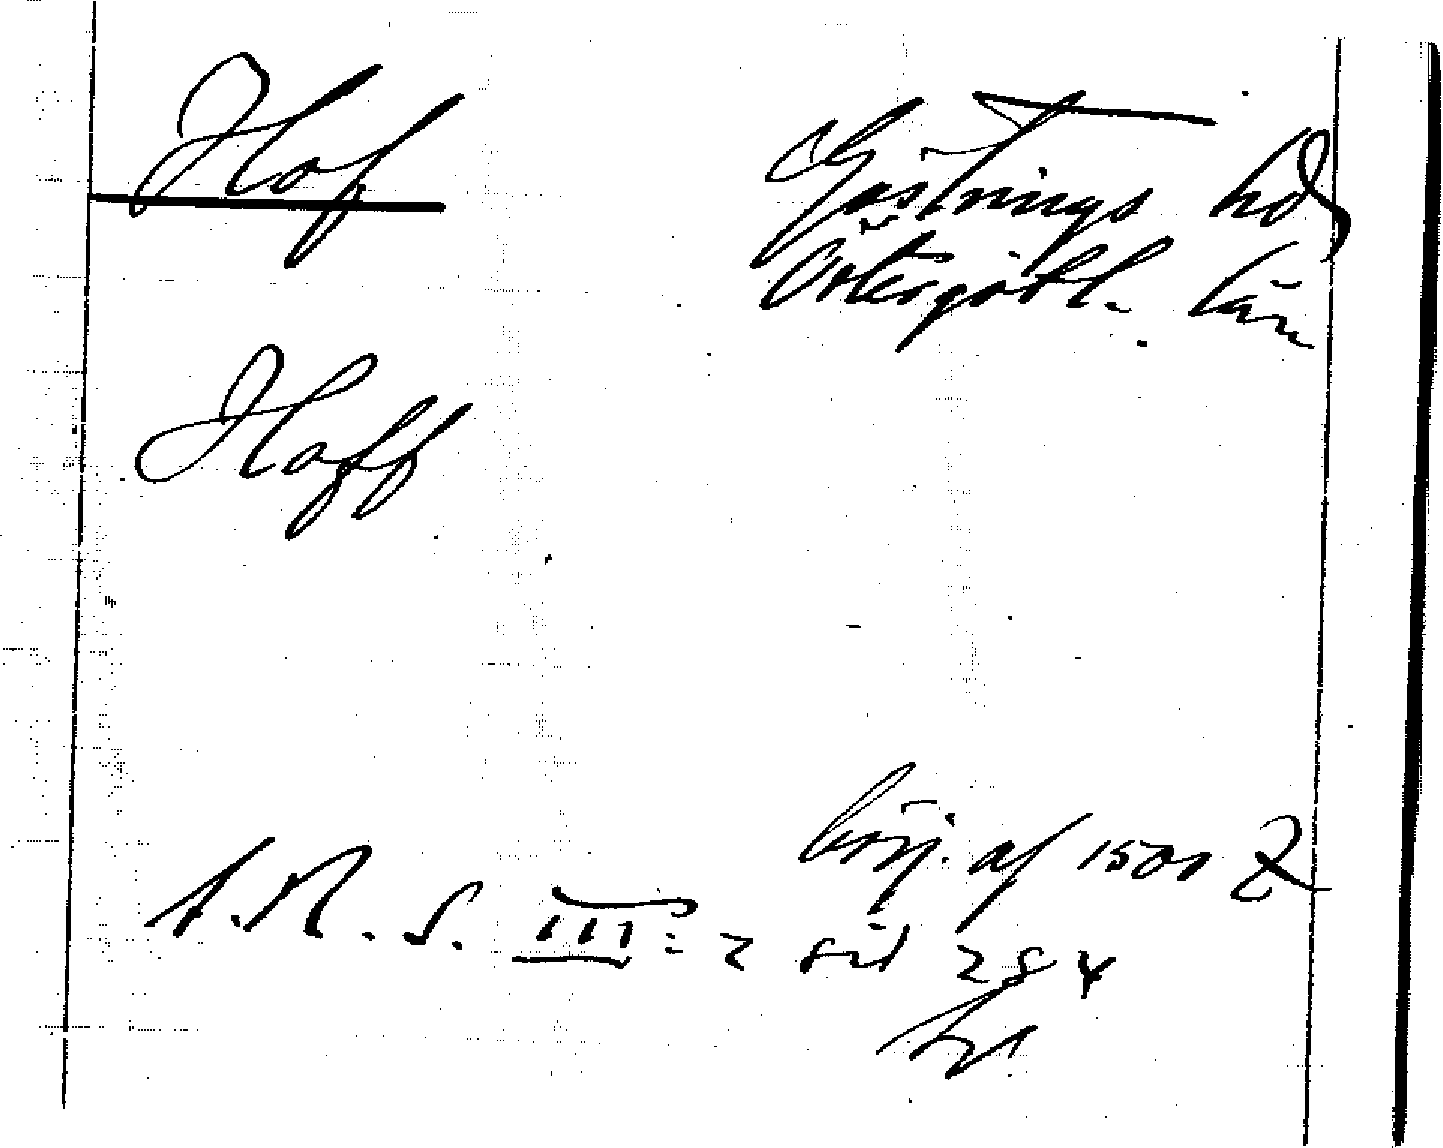 Hof
Göstrings hd
Östergötl. län
Hoff
börj. af 1500 t
S.R.S. III: 2 sid 284